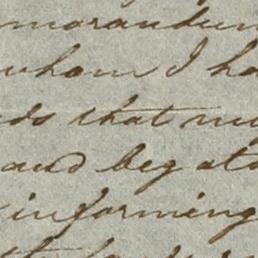 morandum
whom I ha
ds that my
and beg
informing